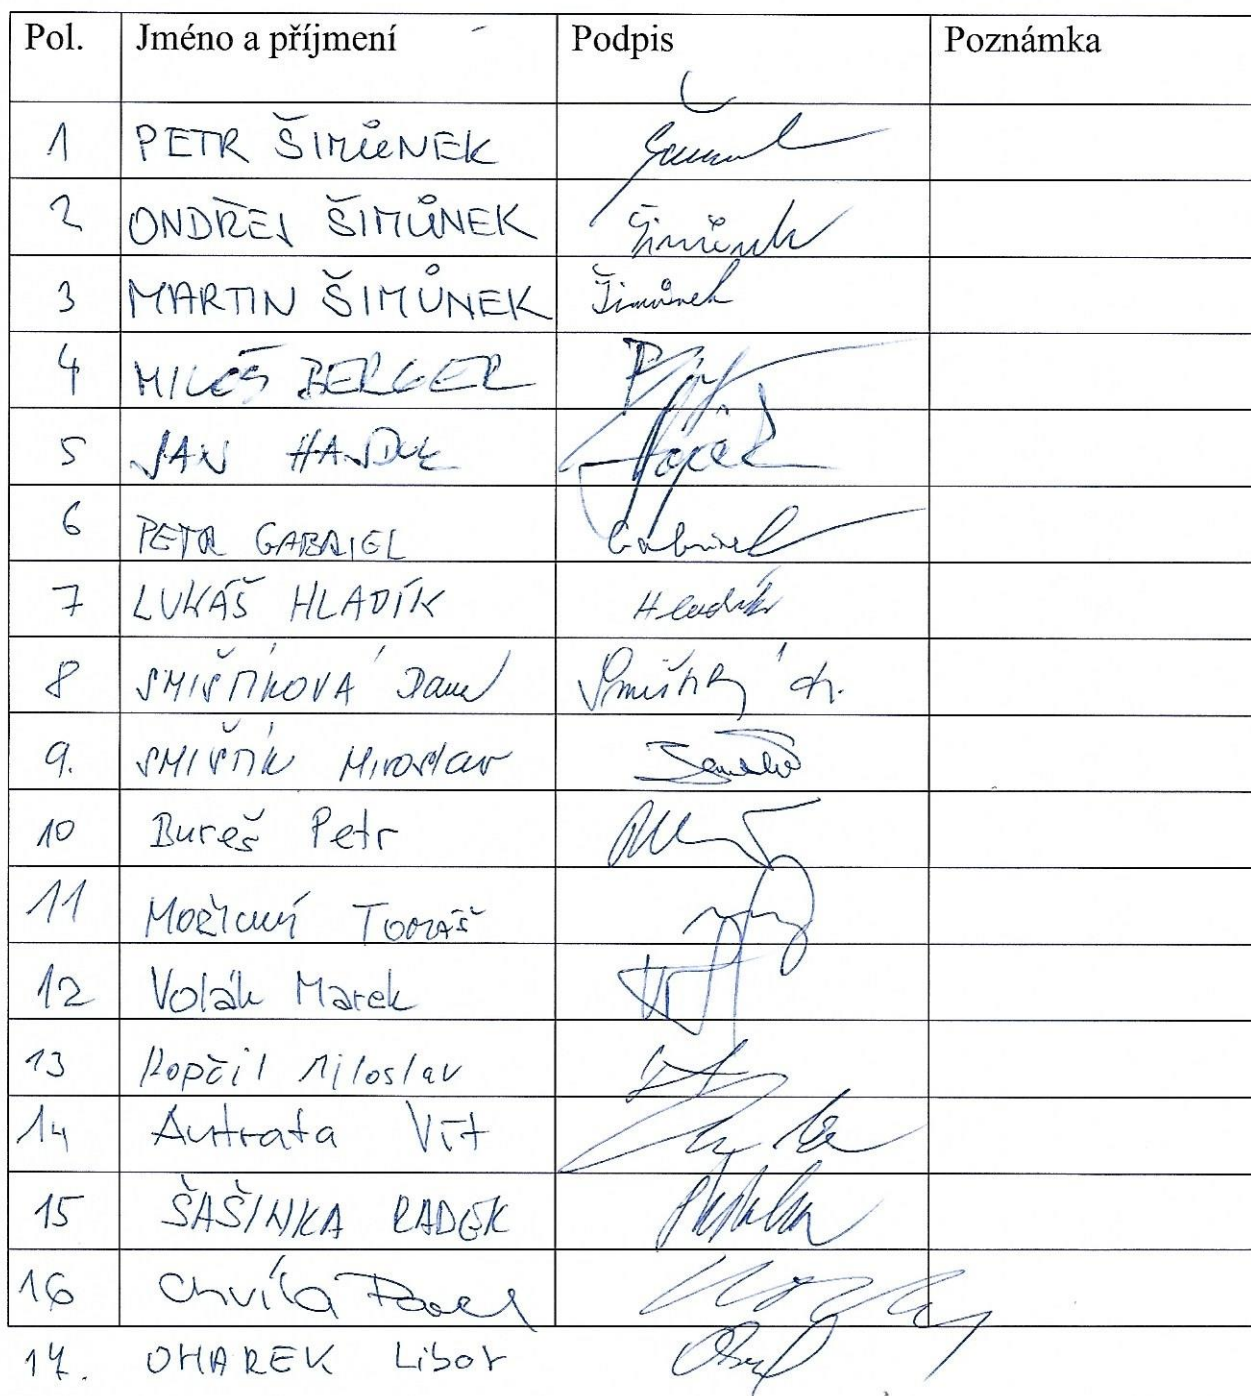 Pol. Jméno a příjmení Podpis Poznámka
1 PETR ŠIMŮNEK
2 ONDŘEJ ŠIMŮNEK Šimůnek
3 MARTIN ŠIMŮNEK Šimůnek
4 MILOŠ BERGER
5 JAN HAJDUK
6 PETR GABRIEL Gabriel
7 LUKÁŠ HLADÍK Hladík
8 SMIŠTÍKOVÁ
9. SMIŠTÍK Miroslav
10 Bureš Petr
11 Tomáš
12 Volák Marek
13 Kopčil Miloslav
14 Autrata Vít
15 ŠAŠINKA RADEK
16 Chvíla Pavel
17. OHAREK Libor